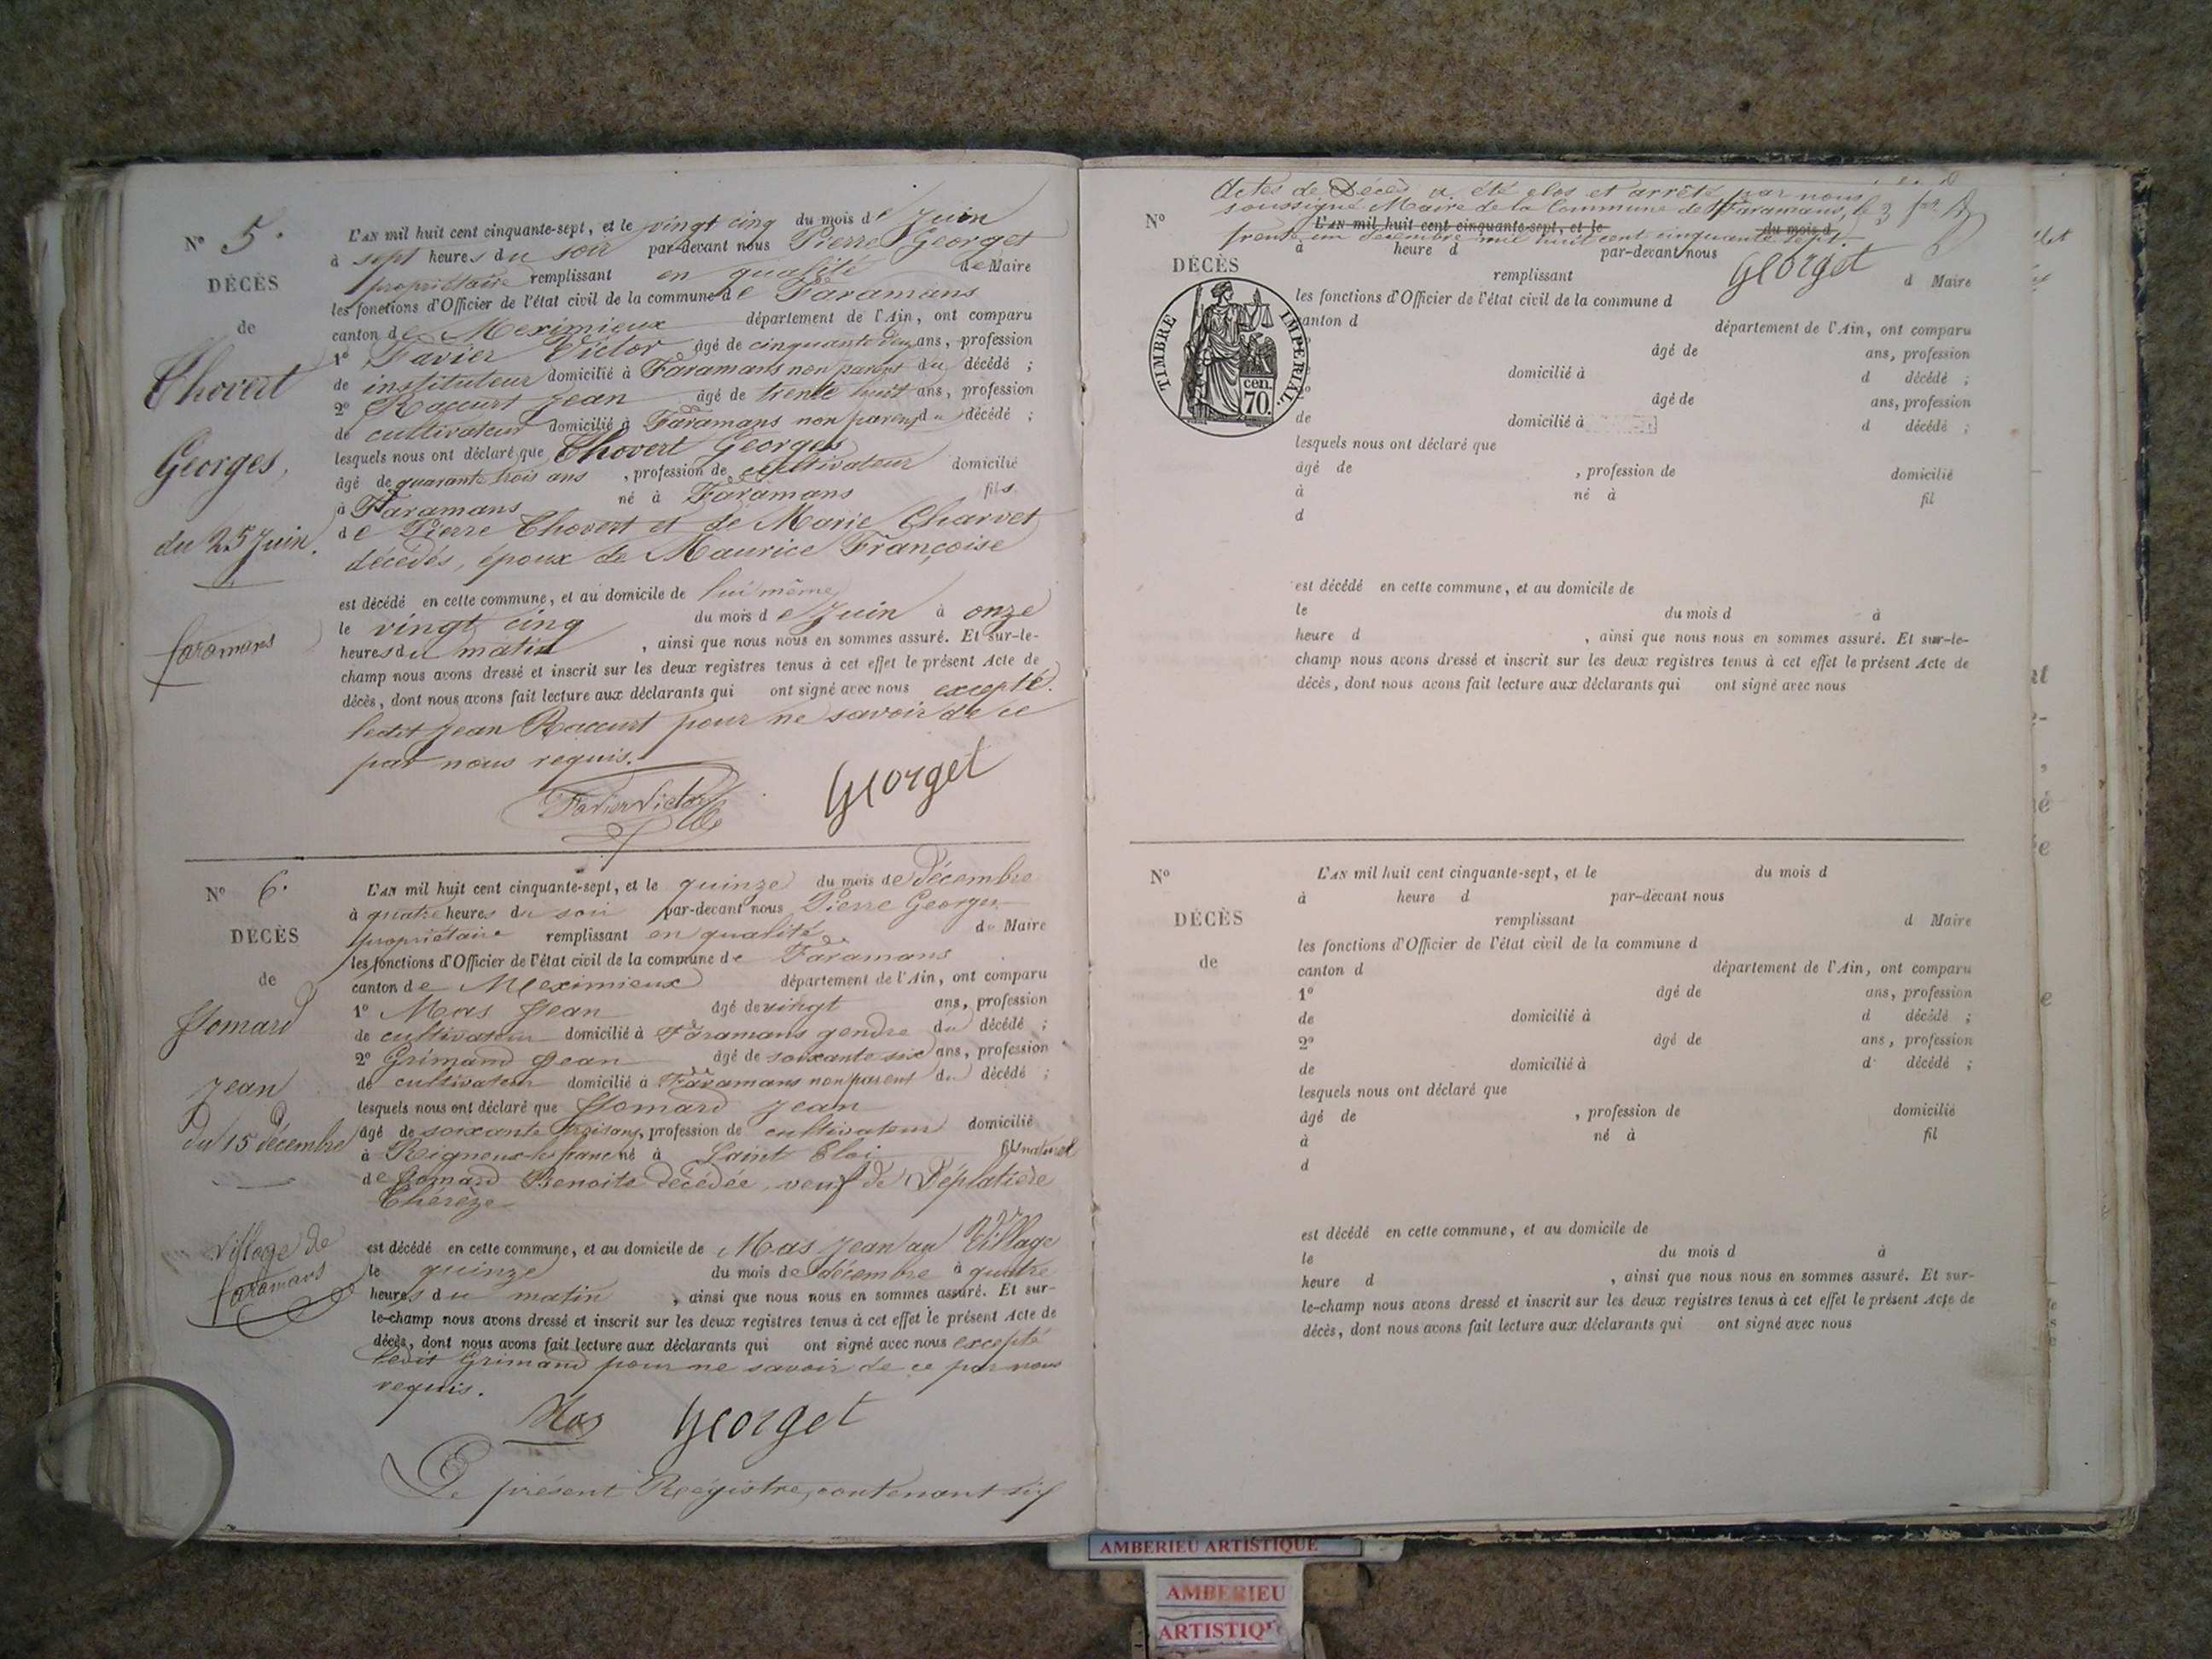 N° 5.
DÉCÈS
de
Chovert
Georges,
du 25 Juin.
faramans
L'AN mil huit cent cinquante-sept, et le vingt cinq du mois de Juin
à sept heures du soir par-devant nous Pierre Georget
propriétaire remplissant en qualité de Maire
les fonctions d'Officier de l'état civil de la commune de Faramans
canton de Meximieux département de l'Ain, ont comparu
1° Favier Victor âgé de cinquante deux ans, profession
de instituteur domicilié à Faramans non parent du décédé ;
2° Raccurt Jean âgé de trente huit ans, profession
de cultivateur domicilié à Faramans non parent du décédé ;
lesquels nous ont déclaré que Chovert Georges
âgé de quarante trois ans , profession de cultivateur domicilié
à Faramans né à Faramans fils
de Pierre Chovert et de Marie Charvet
décédés, époux de Maurice Françoise
est décédé en cette commune, et au domicile de lui même
le vingt cinq du mois de Juin à onze
heures du matin , ainsi que nous nous en sommes assuré. Et sur-le-
champ nous avons dressé et inscrit sur les deux registres tenus à cet effet le présent Acte de
décès, dont nous avons fait lecture aux déclarants qui ont signé avec nous excepté
ledit Jean Raccurt pour ne savoir de ce
par nous requis.
Favier Victor Georget
N° 6.
DÉCÈS
de
Jomard
Jean
du 15 décembre
Village de
faramans
L'AN mil huit cent cinquante-sept, et le quinze du mois de Décembre
à quatre heures du soir par-devant nous Pierre Georget
propriétaire remplissant en qualité de Maire
les fonctions d'Officier de l'état civil de la commune de Faramans
canton de Meximieux département de l'Ain, ont comparu
1° Mas Jean âgé de vingt ans, profession
de cultivateur domicilié à Faramans gendre du décédé ;
2° Grimand Jean âgé de soixante six ans, profession
de cultivateur domicilié à Faramans non parent du décédé ;
lesquels nous ont déclaré que Jomard Jean
âgé de soixante trois ans, profession de cultivateur domicilié
à Rigneux-le-franc né à Saint Eloi fils naturel
de Jomard Benoite décédée, veuf de Déplatière
Thérèze
est décédé en cette commune, et au domicile de Mas Jean au Village
le quinze du mois de décembre à quatre
heures du matin , ainsi que nous nous en sommes assuré. Et sur-
le-champ nous avons dressé et inscrit sur les deux registres tenus à cet effet le présent Acte de
décès, dont nous avons fait lecture aux déclarants qui ont signé avec nous excepté
ledit Grimand pour ne savoir de ce par nous
requis.
Mas Georget
Le présent Registre, contenant six
Actes de Décès a été clos et arrêté par nous
soussigné Maire de la Commune de Faramans, le
trente un Décembre mil huit cent cinquante sept.
Georget
N°
DÉCÈS
TIMBRE IMPÉRIAL.
70 cen.
L'AN mil huit cent cinquante-sept, et le du mois d
à heure d par-devant nous
remplissant d Maire
les fonctions d'Officier de l'état civil de la commune d
canton d département de l'Ain, ont comparu
âgé de ans, profession
domicilié à d décédé ;
âgé de ans, profession
de domicilié à d décédé ;
lesquels nous ont déclaré que
âgé de , profession de domicilié
à né à fil
d
est décédé en cette commune, et au domicile de
le du mois d à
heure d , ainsi que nous nous en sommes assuré. Et sur-le-
champ nous avons dressé et inscrit sur les deux registres tenus à cet effet le présent Acte de
décès, dont nous avons fait lecture aux déclarants qui ont signé avec nous
N°
DÉCÈS
de
L'AN mil huit cent cinquante-sept, et le du mois d
à heure d par-devant nous
remplissant d Maire
les fonctions d'Officier de l'état civil de la commune d
canton d département de l'Ain, ont comparu
1° âgé de ans, profession
de domicilié à d décédé ;
2° âgé de ans, profession
de domicilié à d décédé ;
lesquels nous ont déclaré que
âgé de , profession de domicilié
à né à fil
d
est décédé en cette commune, et au domicile de
le du mois d à
heure d , ainsi que nous nous en sommes assuré. Et sur-
le-champ nous avons dressé et inscrit sur les deux registres tenus à cet effet le présent Acte de
décès, dont nous avons fait lecture aux déclarants qui ont signé avec nous
AMBERIEU ARTISTIQUE
AMBERIEU
ARTISTIQ